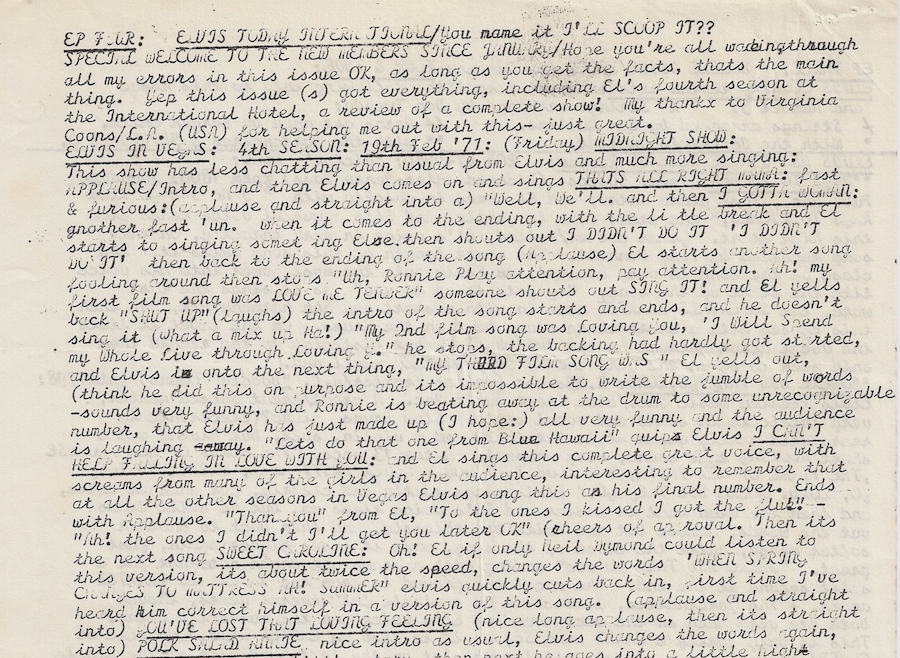 EP FOUR: ELVIS TODAY INTERNATIONAL/You name it I'LL SCOOP IT??
SPECIAL WELCOME TO THE NEW MEMBERS SINCE JANUARY/Hope you're all wadingthrough
all my errors in this issue OK, as long as you get the facts, thats the main
thing. Yep this issue (s) got everything, including El's fourth season at
the International Hotel, a review of a complete show! My thankx to Virginia
Coons/L.A. (USA) for helping me out with this- just great.
ELVIS IN VEGAS: 4th SEASON: 19th Feb '71: (Friday) MIDNIGHT SHOW:
This show has less chatting than usual from Elvis and much more singing:
APPLAUSE/Intro, and then Elvis comes on and sings THATS ALL RIGHT MAMA: fast
& furious:(applause and straight into a) "Well, We'll. and then I GOTTA WOMAN:
gnother fast 'un. when it comes to the ending, with the li tle break and El
starts to singing somet ing Else.then shouts out I DIDN'T DO IT 'I DIDN'T
DO IT' then back to the ending of the song (Applause) El starts another song
fooling around then stops "Uh, Ronnie Play attention, pay attention. Ah! my
first film song was LOVE ME TENDER" someone shouts out SING IT! and El yells
back "SHUT UP"(laughs) the intro of the song starts and ends, and he doesn't
sing it (What a mix up Ha!) "My 2nd film song was Loving You, 'I Will Spend
my Whole Live through Loving Y." he stops, the backing had hardly got started,
and Elvis is onto the next thing, "MY THIRD FILM SONG WAS " El yells out,
(think he did this on purpose and its impossible to write the jumble of words
-sounds very funny, and Ronnie is beating away at the drum to some unrecognizable
number, that Elvis has just made up (I hope:) all very funny and the audience
is laughing away. "Lets do that one from Blue Hawaii" quips Elvis I CAN'T
HELP FALLING IN LOVE WITH YOU: and El sings this complete great voice, with
screams from many of the girls in the audience, interesting to remember that
at all the other seasons in Vegas Elvis sang this as his final number. Ends
with Applause. "Thank you" from El, "To the ones I kissed I got the flu!! -
"Ah! the ones I didn't I'll get you later OK" (cheers of approval. Then its
the next song SWEET CAROLINE: Oh! El if only Neil Dymond could listen to
this version, its about twice the speed, changes the words 'WHEN SPRING
CHANGES TO MATTRESS AH! SUMMER" elvis quickly cuts back in, first time I've
heard him correct himself in a version of this song. (applause and straight
into) YOU'VE LOST THAT LOVING FEELING (nice long applause, then its straight
into) POLK SALAD ANNIE nice intro as usual, Elvis changes the words again,
then next he goes into a little high